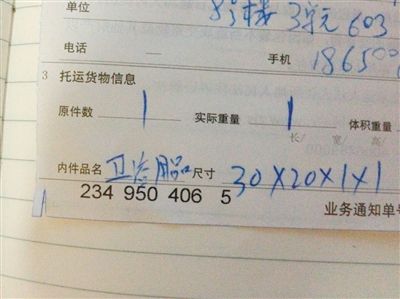 单位 8号楼 3单元 603
电话 — 手机 18650
3 托运货物信息
原件数 1 实际重量 1 体积重量
长/ 宽/ 高/
内件品名 卫浴用品 尺寸 30X20X1X1
234 950 406 5
业务通知单号